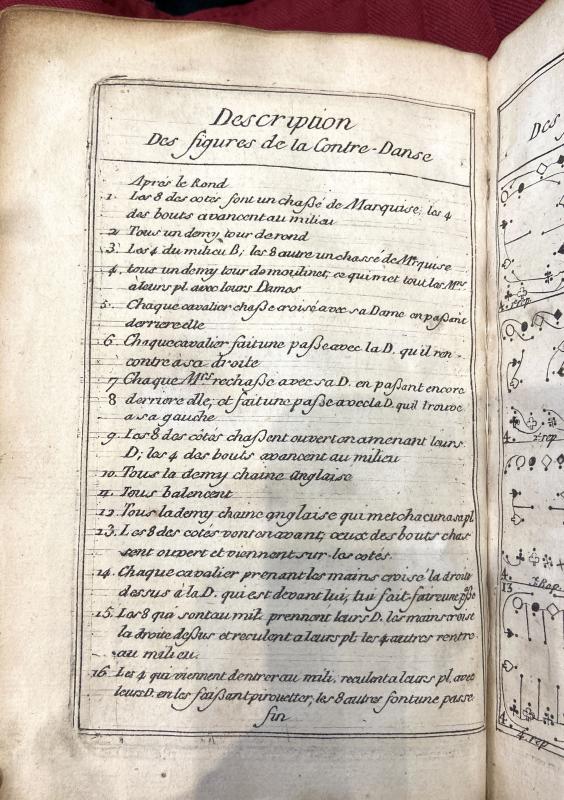 Description
Des figures de la Contre-Danse
Après le Rond
1. Les 8 des cotés font un chaßé de Marquise; les 4
des bouts avancent au milieu
2. Tous un demy tour de rond
3. Les 4 du milieu B; les 8 autre un chassé de Mrquise
4. tous un demy tour de moulinet; ce qui met tout les Mrs
à leurs pl. avec leurs Dames
5. Chaque cavalier chaße croisé avec sa Dame en paßant
derriere elle
6. Chaque cavalier fait une paße avec la D. qu'il ren-
contre à sa droite
7 Chaque Mrs rechaße avec sa D. en paßant encore
8 derriere elle, et fait une paße avec la D. quil trouve
a sa gauche
9. Les 8 des côtés chaßent ouvert en amenant leurs
D; les 4 des bouts avancent au milieu
10. Tous la demy chaine Anglaise
11. Tous balencent
12. Tous la demy chaine anglaise qui met chacun a sa pl.
13. Les 8 des cotés vont en avant; ceux des bouts chas
sent ouvert et viennent sur les cotés
14. Chaque cavalier prenant les mains croisé la droite
dessus à la D. qui est devant lui, lui fait faire une pße
15. Les 8 qui sont au mili. prennent leurs D. les mains croise
la droite deßus et reculent a leurs pl. les 4 autres rentre
au milieu
16 Les 4 qui viennent dentrer au mili, reculent a leurs pl. avec
leurs D. en les faißant pirouetter, les 8 autres font une passe
fin
Des
4. rep
4. 2. rep
4. 3. Rep.
13
4. 4. rep